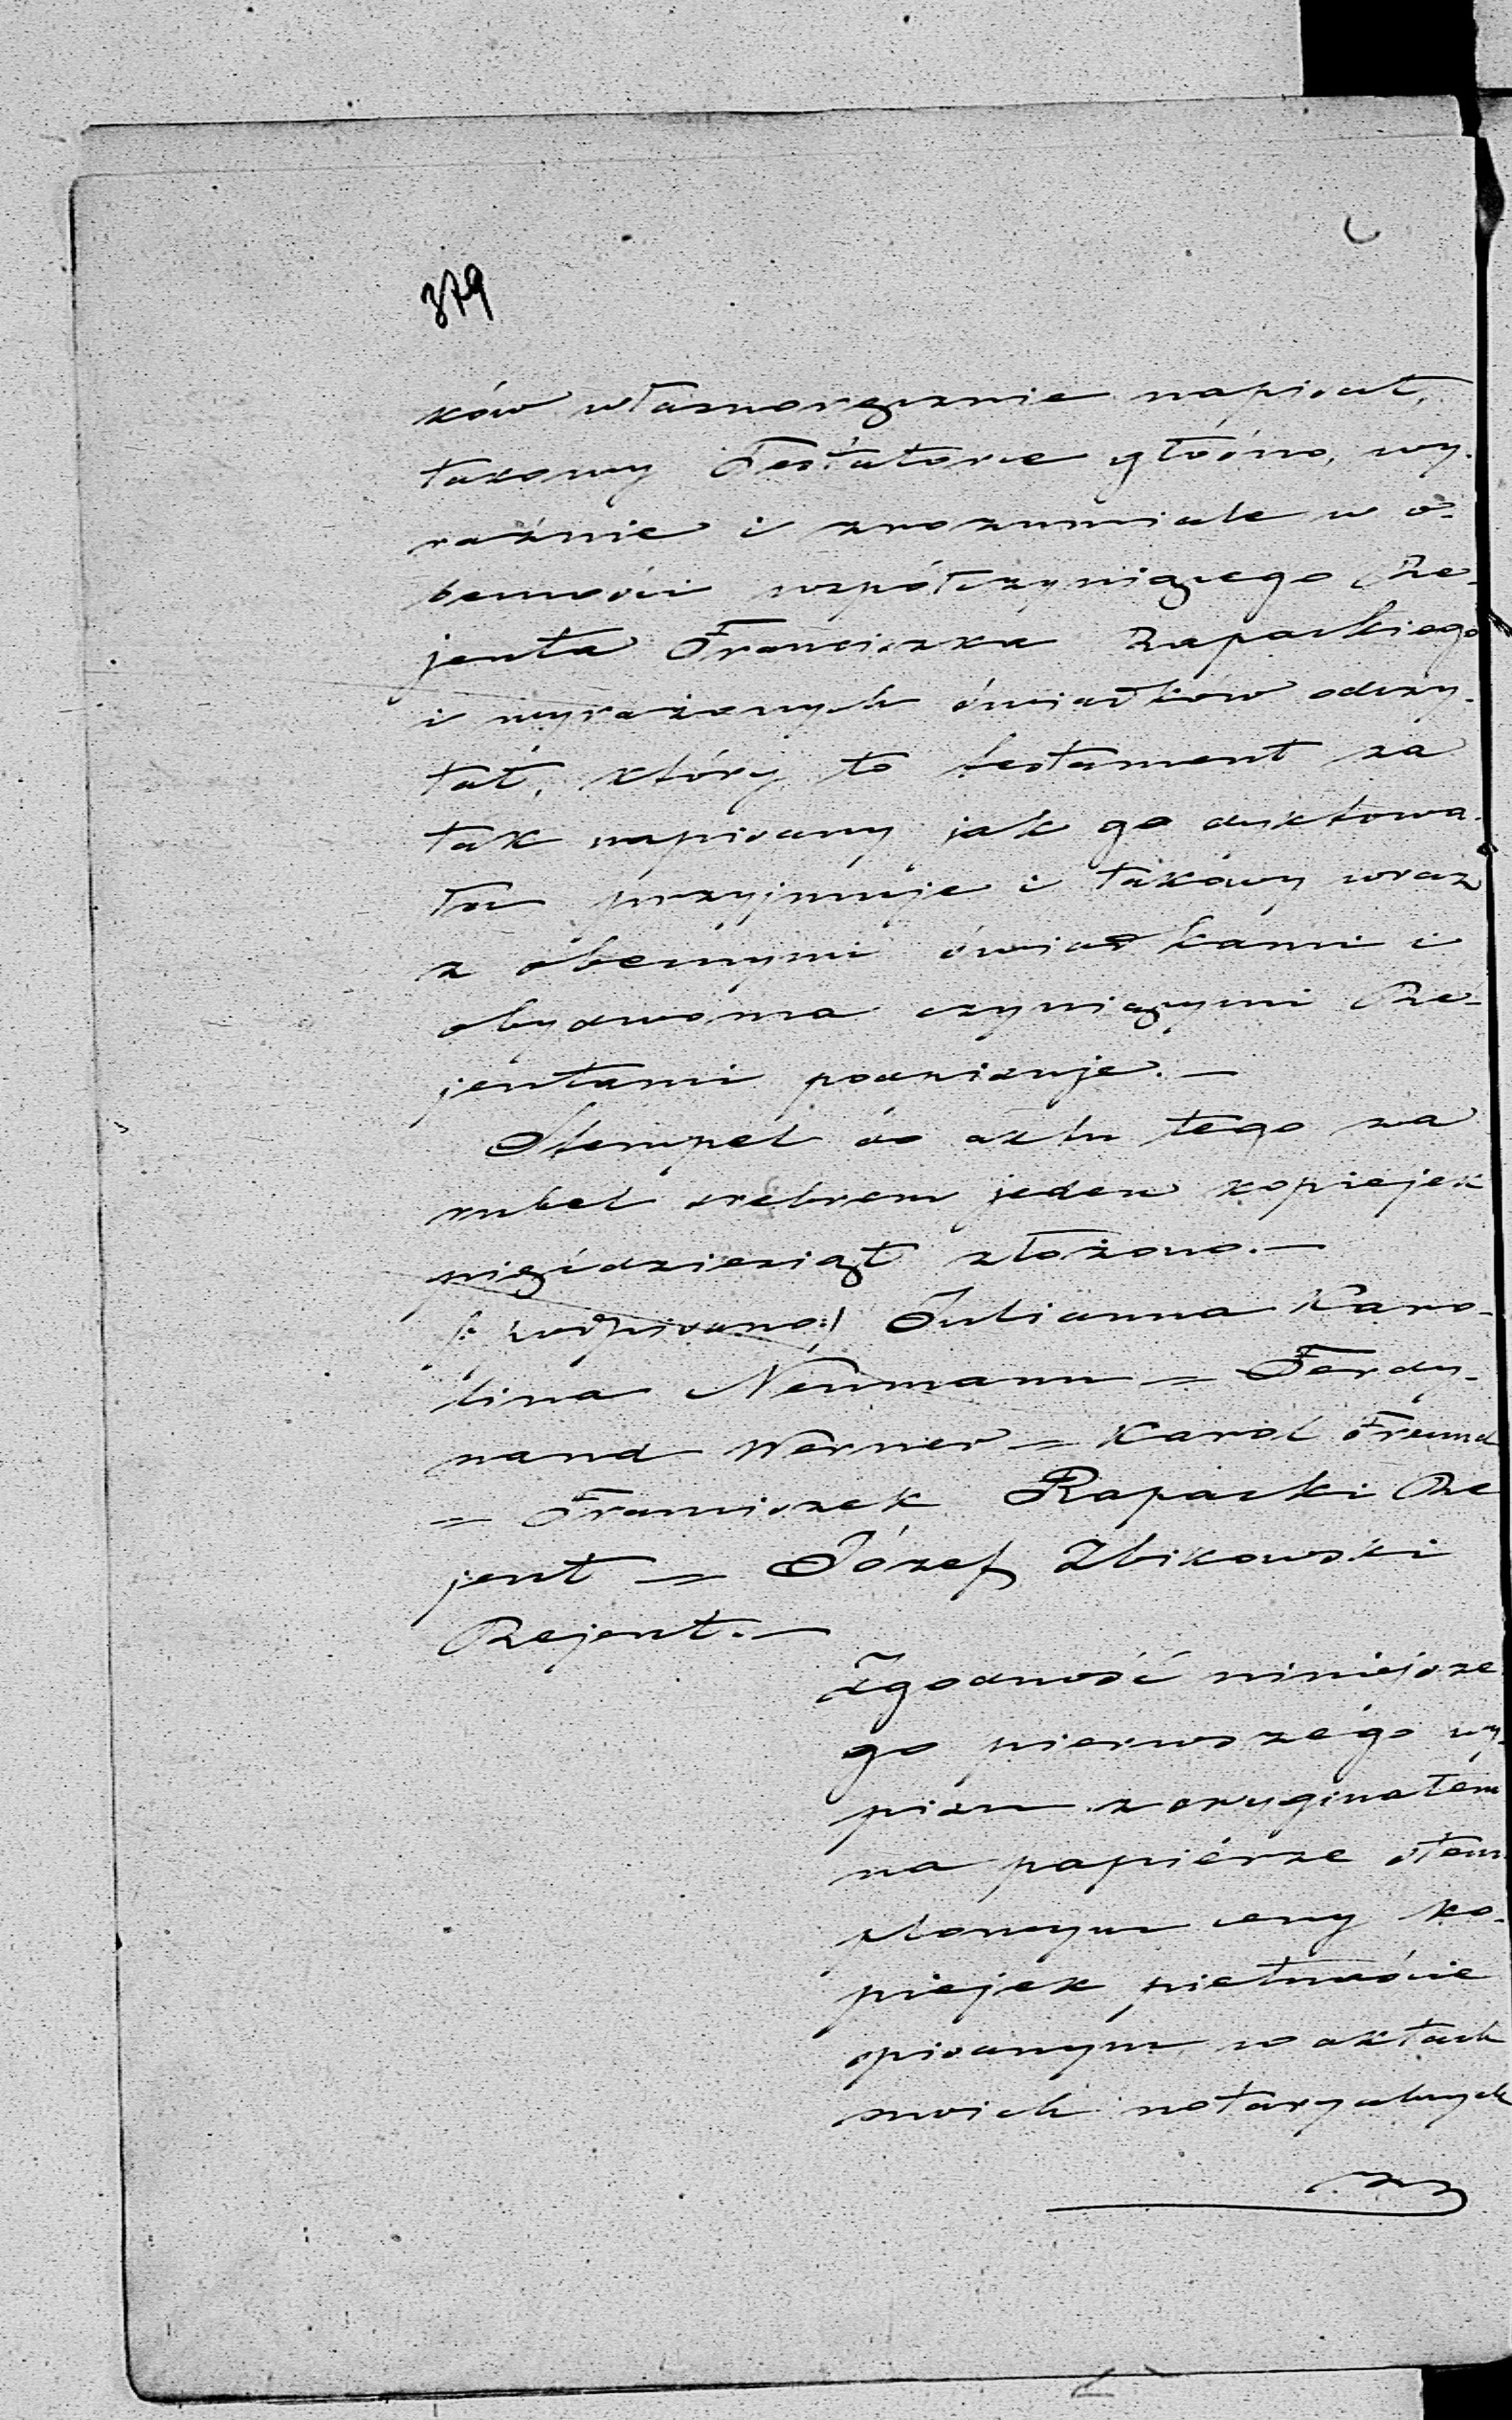 379
ków własnoręcznie napisał,
takowy Testatorce głośno, wy-
raźnie i zrozumiale w o-
becności współczyniącego Re-
jenta Franciszka Rapackiego
i wyrażonych świadków odczy-
tał, który to testament za
tak napisany jak go dyktowa-
ła przyjmuje i takowy wraz
z obecnymi świadkami i
obydwoma czyniącymi Re-
jentami podpisuje.—
Stempel do aktu tego za
rubel srebrem jeden kopiejek
pięćdziesiąt złożono.—
/: podpisano:/ Julianna Karo-
lina Neumann = Ferdy-
nand Werner = Karol Freund
= Franciszek Rapacki Re
jent = Józef Zbikowski
Rejent.—
Zgodność niniejsze
go pierwszego wy-
pisu z oryginałem
na papierze stem
plowym ceny ko-
piejek pietnaście
spisanym w aktach
moich notaryalnych